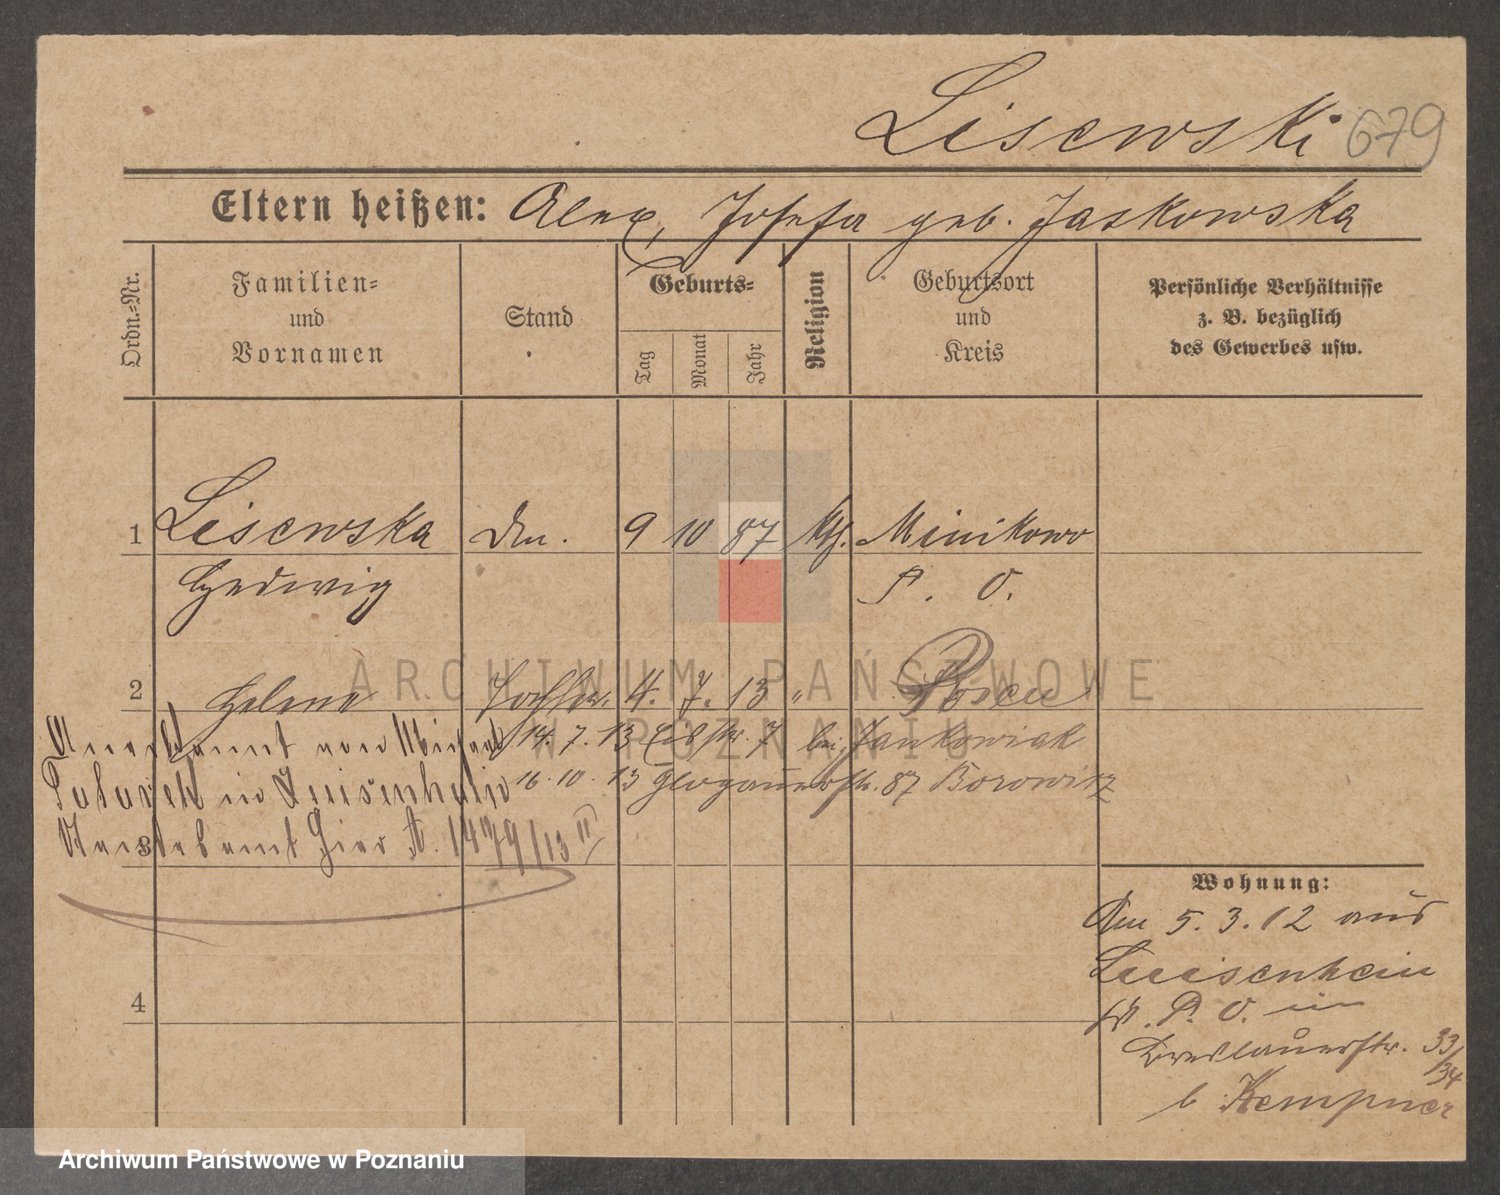 Lisewski 679
Eltern heißen: Alex, Josefa geb. Jaskowska
Ordn.-Nr.
Familien-
und
Vornamen
Stand
Geburts-
Tag
Monat
Jahr
Religion
Geburtsort
und
Kreis
Persönliche Verhältnisse
z. B. bezüglich
des Gewerbes usw.
1 Lisewska 9 10 87 kth. Minikowo
Hedwig P. O.
2 Helene Tochter 4. 7. 13 " Posen
14. 7. 13 7 bei Jankowiak
16. 10. 13 Glogauerstr. 87 Borowicz
Anerkannt von
in Luisenhain
Standesamt hier 1479/13 II
3
4
Wohnung:
Am 5. 3. 12 aus
Luisenhain
P. O. in
Breslauerstr. 33/34
b Kempner
ARCHIWUM PAŃSTWOWE
W POZNANIU
Archiwum Państwowe w Poznaniu